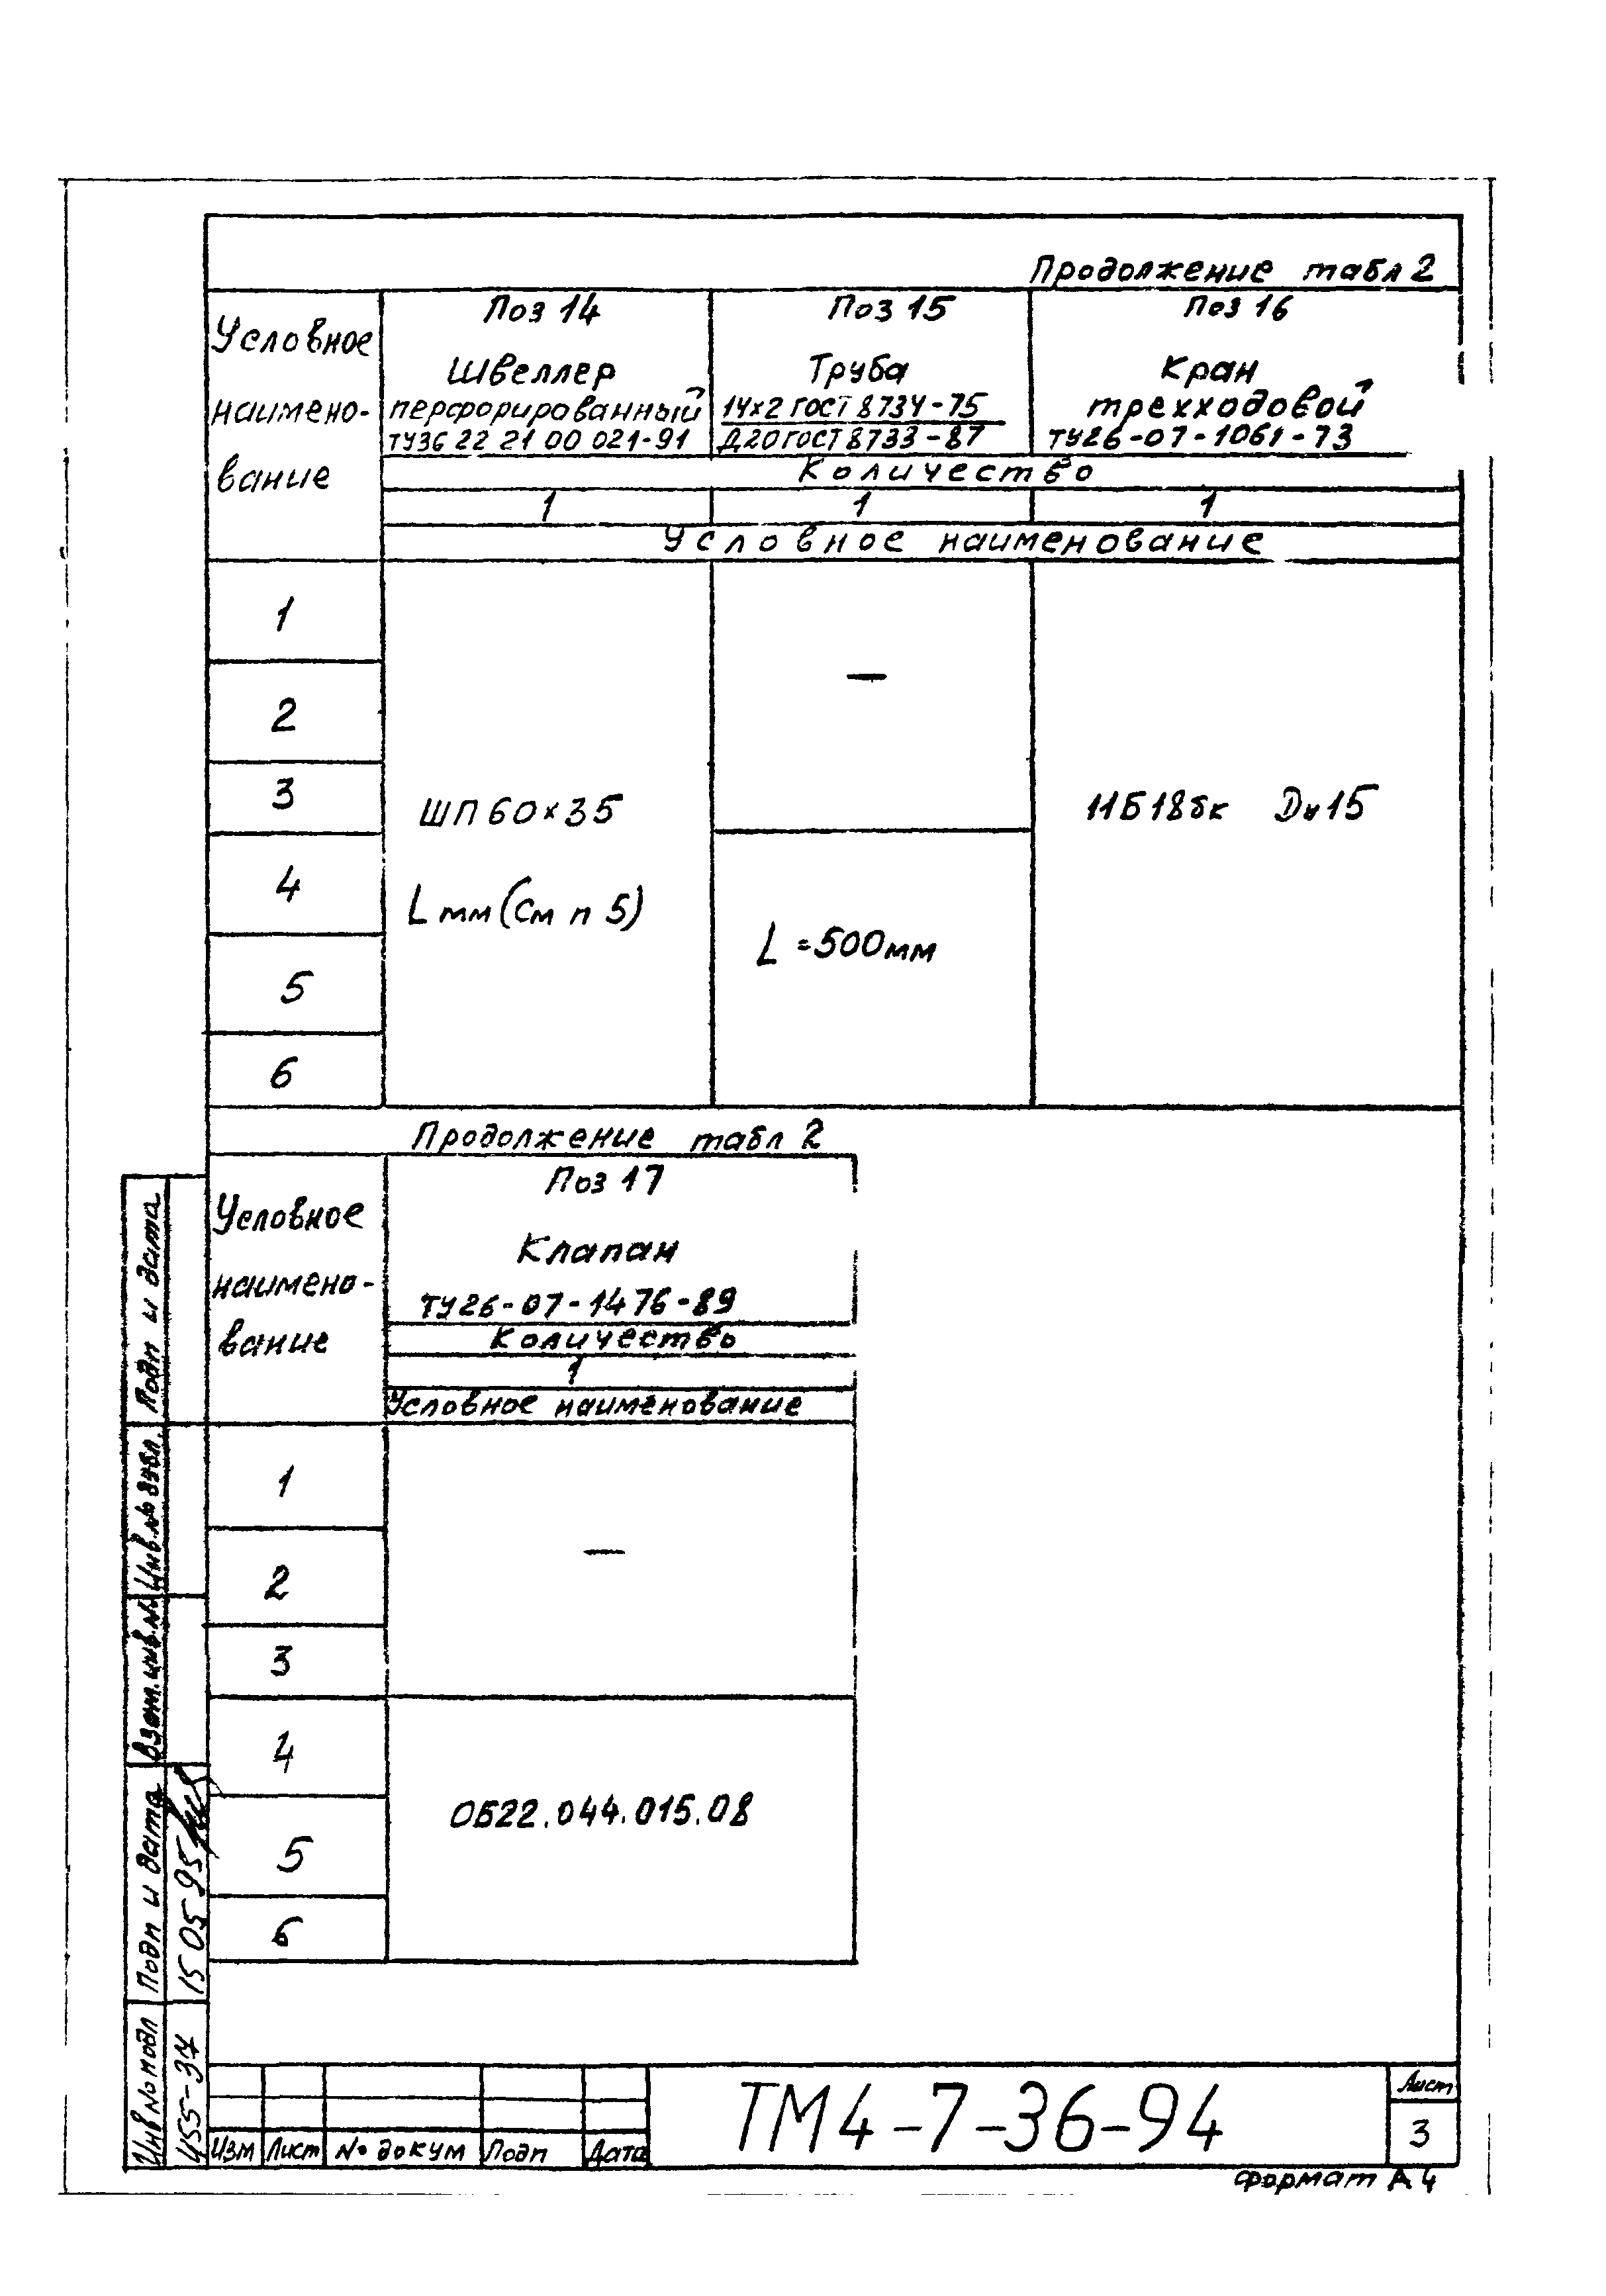 Продолжение табл 2
Условное
наимено-
вание
Поз 14
Швеллер
перфорированный
ТУ36 22 21 00 021-91
Поз 15
Труба
14х2 ГОСТ 8734-75
Д20 ГОСТ 8733-87
Поз 16
Кран
трехходовой
ТУ26-07-1061-73
Количество
1 1 1
Условное наименование
1
2
3
4
5
6
ШП 60×35
L мм (См п 5)
—
L =500мм
11Б18бк Dу15
Продолжение табл 2
Условное
наимено-
вание
Поз 17
Клапан
ТУ26-07-1476-89
Количество
1
Условное наименование
1
2
3
4
5
6
—
ОБ22.044.015.08
Подп и дата
Инв.№ дубл.
Взам.инв.№
Подп и дата
15 05 95
Инв № подл
455-34
Изм Лист № докум Подп Дата
ТМ4-7-36-94
Лист
3
формат А4